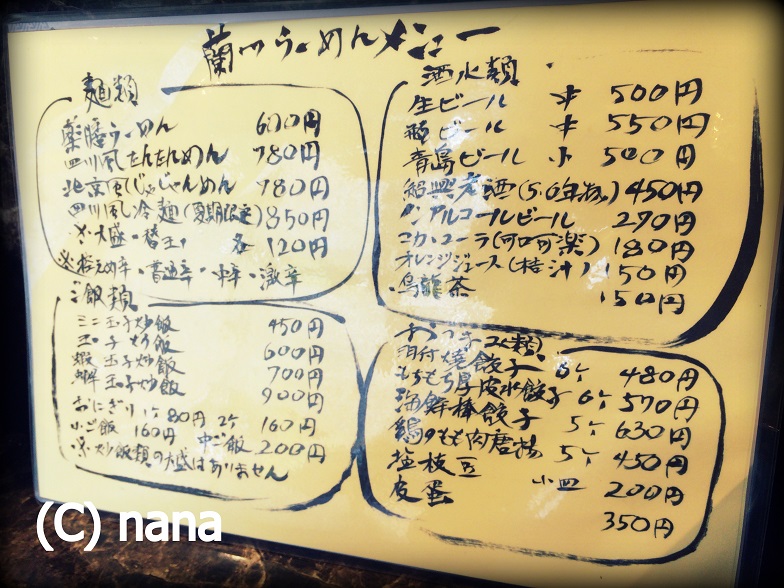 蘭州らーめんメニュー
麺類
薬膳らーめん 600円
四川風たんたんめん 780円
北京風じゃじゃんめん 780円
四川風冷麺(夏期限定) 850円
※・大盛・替玉 各 120円
※控え辛・普通辛・中辛・激辛
ご飯類
ミニ玉子炒飯 450円
玉子炒飯 600円
蝦玉子炒飯 700円
蟹玉子炒飯 900円
おにぎり 1ケ 80円 2ケ 160円
小ご飯 160円 中ご飯 200円
※炒飯類の大盛はありません
酒水類
生ビール 中 500円
瓶ビール 中 550円
青島ビール 小 500円
紹興老酒(5.0年物) 450円
ノンアルコールビール 290円
コカ・コーラ(可口可楽) 180円
オレンジジュース(桔汁) 150円
烏龍茶 150円
おつまみ類
羽付焼餃子 6ケ 480円
もちもち厚皮水餃子 6ケ 570円
海鮮棒餃子 5ケ 630円
鶏のもも肉唐揚 5ケ 450円
塩枝豆 小皿 200円
皮蛋 350円
(C) nana